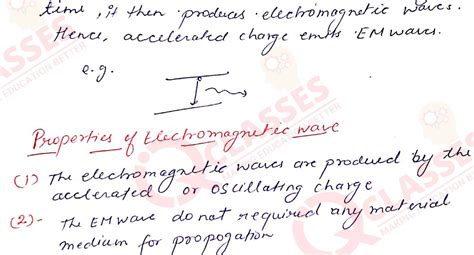 time, it then produces electromagnetic waves.
Hence, accelerated charge emits EM waves.
e.g.
Properties of Electromagnetic wave
(1) The electromagnetic waves are produed by the
acclerated or oscillating charge
(2)- The EM wave do not required any material
medium for propogation
CLASSES
EDUCATION BETTER
CLASSES